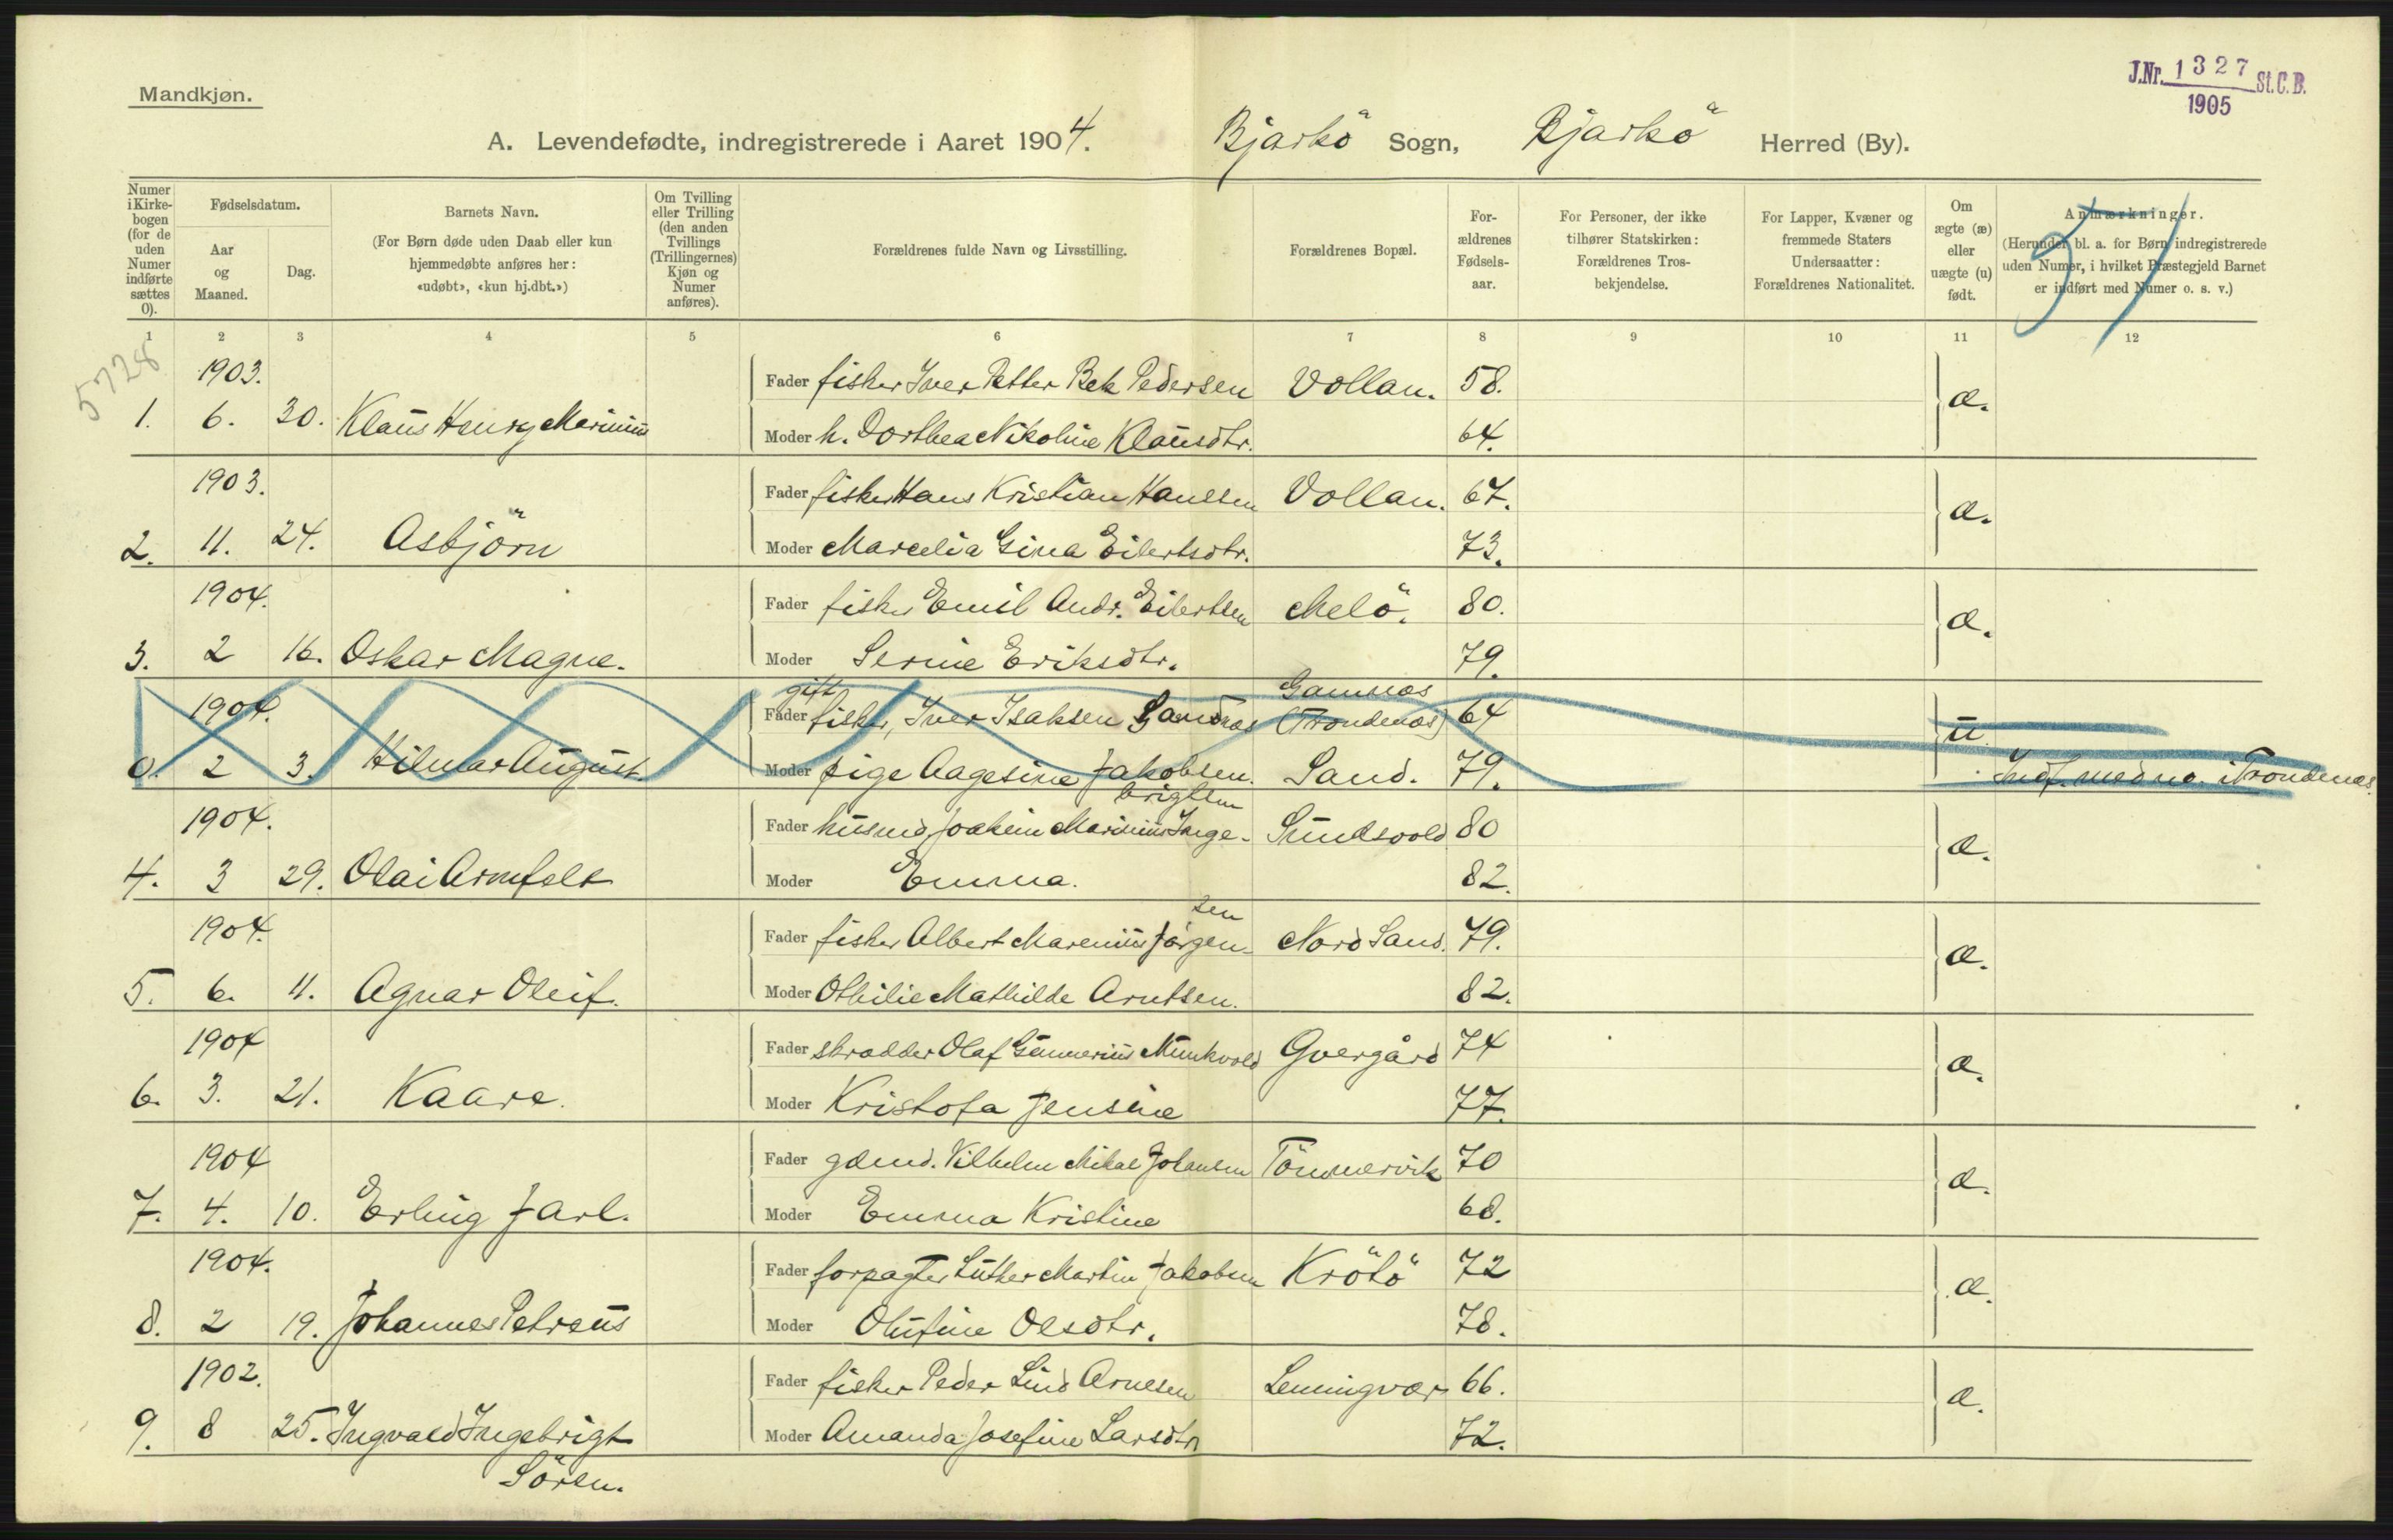 Mandkjøn.
J.Nr. 1327 St.C.B.
1905
A. Levendefødte, indregistrerede i Aaret 1904. Bjarkö Sogn, Bjarkö Herred (By).
Numer i Kirkebogen (for de uden Numer indførte sættes 0).
Fødselsdatum.
Aar og Maaned.
Dag.
Barnets Navn.
(For Børn døde uden Daab eller kun hjemmedøbte anføres her: «udøbt», «kun hj.dbt.»)
Om Tvilling eller Trilling (den anden Tvillings (Trillingernes) Kjøn og Numer anføres).
Forældrenes fulde Navn og Livsstilling.
Forældrenes Bopæl.
Forældrenes Fødselsaar.
For Personer, der ikke tilhører Statskirken: Forældrenes Trosbekjendelse.
For Lapper, Kvæner og fremmede Staters Undersaatter: Forældrenes Nationalitet.
Om ægte (æ) eller uægte (u) født.
Anmærkninger.
(Herunder bl. a. for Børn indregistrerede uden Numer, i hvilket Præstegjeld Barnet er indført med Numer o. s. v.)
1 2 3 4 5 6 7 8 9 10 11 12
5728
1903. Fader fisker Iver Petter Bek Pedersen Vollan. 58. æ.
1. 6. 30. Klaus Henry Marinius Moder h. Dorthea Nikoline Klausdtr. 64.
1903. Fader fisker Hans Kristian Hansen Vollan. 67. æ.
2. 11. 24. Asbjörn Moder Marcelia Gina Eilertsdtr. 73.
1904. Fader fisker Emil Andr. Eilertsen Melö. 80. æ.
3. 2 16. Oskar Magne. Moder Serine Eriksdtr. 79.
gift Gamnæs
1904. Fader fisker, Iver Isaksen (Trondenæs) 64 u
0. 2 3. Hilmar August Moder pige Aagesine Jakobsen. Sand. 79. Indf. med no. i Trondenæs.
brigtsen
1904. Fader husmd. Joakim Marinius Inge- Sundsvold 80 æ.
4. 3 29. Olai Armfelt Moder Emma. 82.
sen
1904. Fader fisker Albert Marenius Jørgen- Nord Sand. 79. æ.
5. 6. 11. Agnar Oleif. Moder Othilie Mathilde Arntsen. 82.
1904 Fader skrædder Olaf Gunnerius Munkvold Gvergård 74 æ.
6. 3. 21. Kaare. Moder Kristofa Jensine 77.
1904 Fader gdmd. Vilhelm Mikal Johansen Tömmervik 70 æ.
7. 4. 10. Erling Jarl. Moder Emma Kristine 68.
1904. Fader forpagter Luther Martin Jakobsen Krötö 72 æ.
8. 2 19. Johannes Petreus Moder Olufine Olsdtr. 78.
1902. Fader fisker Peder Lind Arnesen Lemingvær 66. æ.
9. 8 25. Ingvald Ingebrigt Moder Amanda Josefine Larsdtr 72.
Sören.